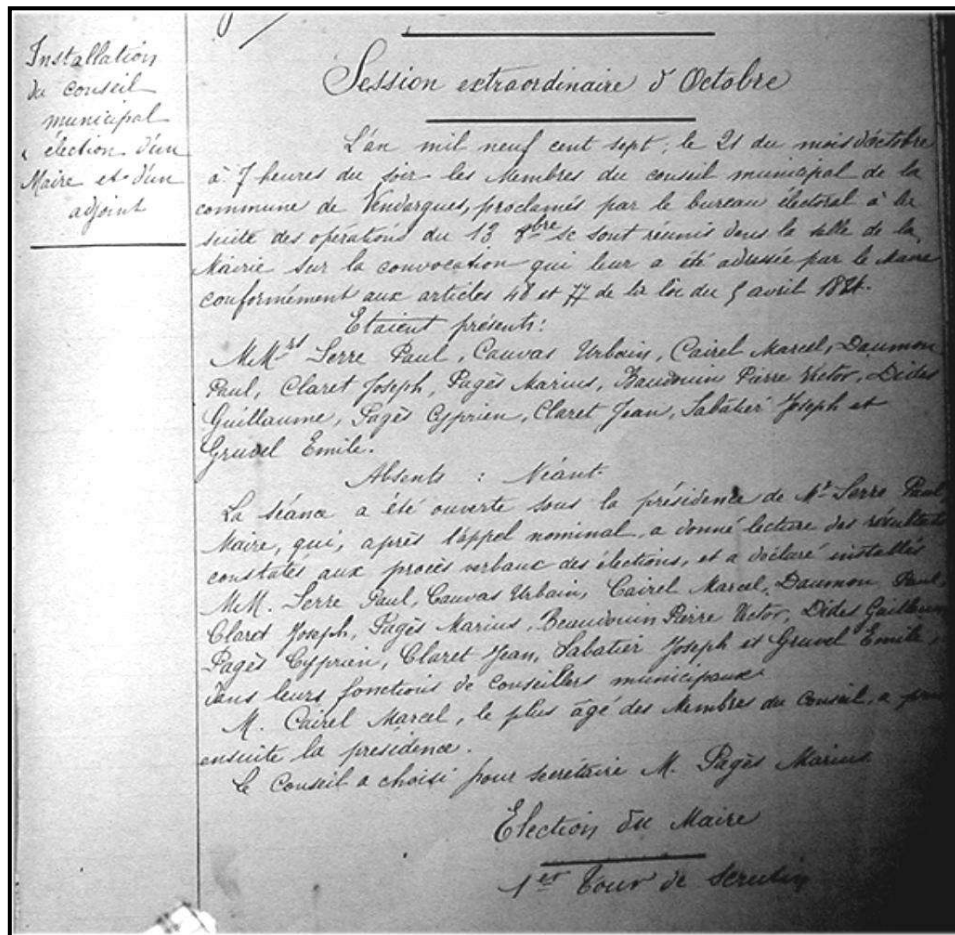 Installation
du conseil
municipal
élection d'un
Maire et d'un
adjoint
Session extraordinaire d'Octobre
L'an mil neuf cent sept, le 21 du mois d'octobre
à 7 heures du soir les Membres du conseil municipal de la
commune de Vendargues, proclamés par le bureau électoral à la
suite des opérations du 13 8bre se sont reunis dans la salle de la
Mairie sur la convocation qui leur a été adressée par le Maire
conformément aux articles 48 et 77 de la loi du 5 avril 1884.
Etaient présents:
M.Mrs Serre Paul, Cauvas Urbain, Cairel Marcel, Daumon
Paul, Claret Joseph, Pagès Marius, Baudouin Pierre Victor, Dides
Guillaume, Pagès Cyprien, Claret Jean, Sabatier Joseph et
Gruvel Emile.
Absents : Néant.
La séance a été ouverte sous la présidence de Mr Serre Paul
Maire, qui, après l'appel nominal, a donné lecture des résultats
constatés aux procès verbaux des élections, et a déclaré installés
M.M. Serre Paul, Cauvas Urbain, Cairel Marcel, Daumon Paul,
Claret Joseph, Pagès Marius, Beaudouin Pierre Victor, Dides Guillaume
Pagès Cyprien, Claret Jean, Sabatier Joseph et Gruvel Emile,
dans leurs fonctions de conseillers municipaux.
M. Cairel Marcel, le plus âgé des Membres du Conseil, a pris
ensuite la présidence.
Le Conseil a choisi pour secrétaire M. Pagès Marius.
Election du Maire
1er Tour de scrutin